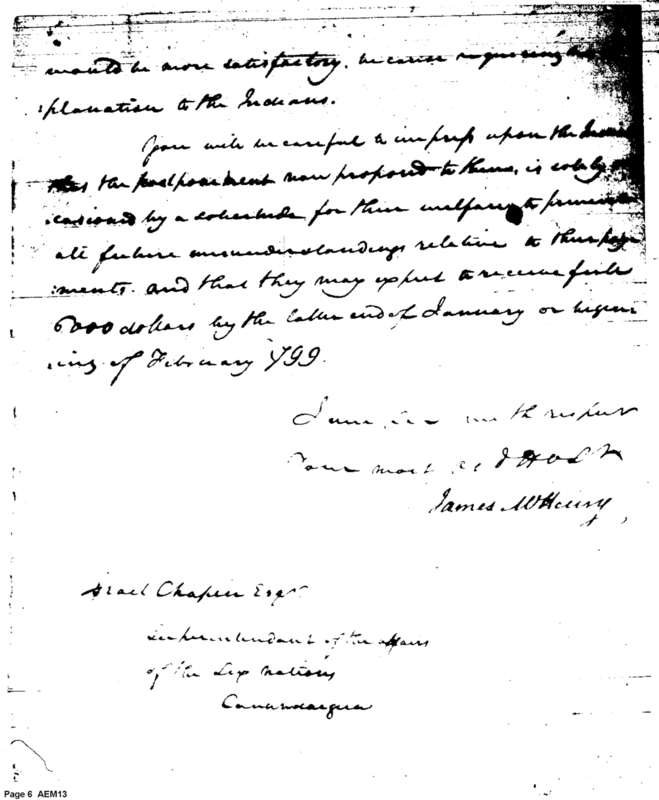 would be more satisfactory, because requiring no ex
:planation to the Indians.
You will be careful to impress upon the Indians
that the postponement now proposed to them, is solely oc
:casioned by a solicitude for their welfare, to prevent
all future misunderstandings relative to their pay
:ments. and that they may expect to receive full
6000 dollars by the latter end of January or begin
:ning of February 1799.
I am, Sir with respect
Your most ob d Hble St
James McHenry
Israel Chapin Esqr
Superintendant of the affairs
of the Six Nations
Canandaigua
Page 6 AEM13